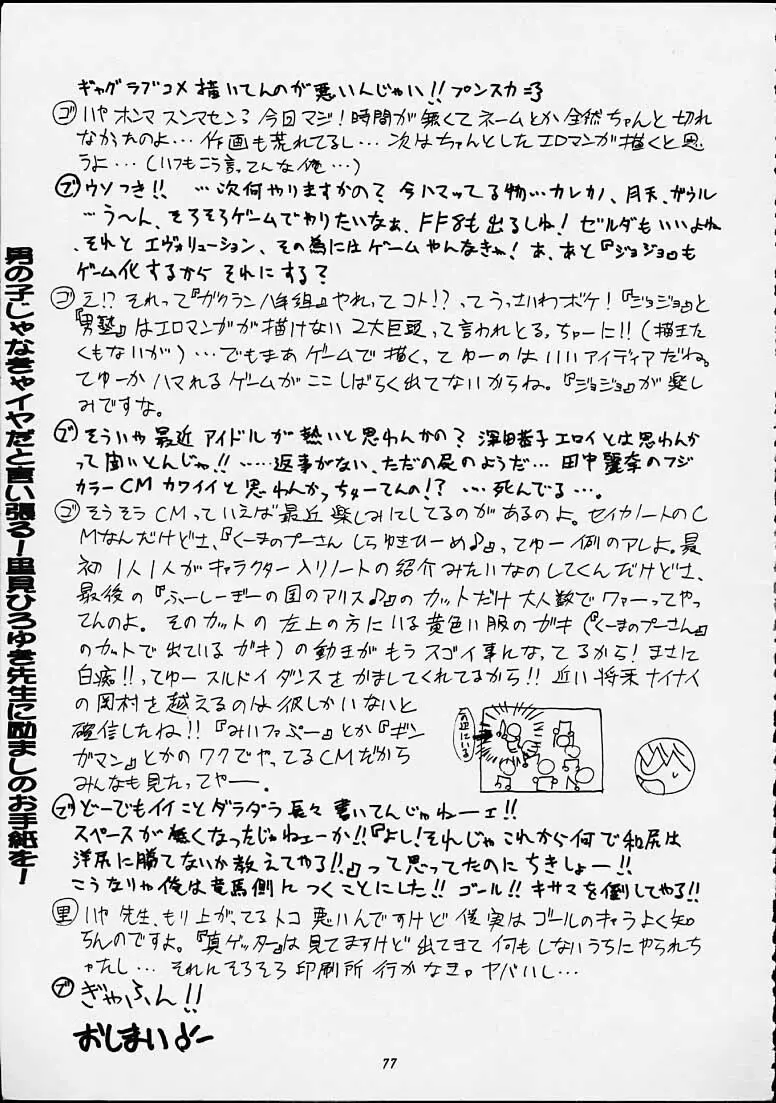 ギャグラブコメ描いてんのが悪いんじゃい!!プンスカ=3
ゴ いや ホンマ スンマセン? 今日マジ!時間が無くてネームとか全然ちゃんと切れ
なかったのよ… 作画も荒れてるし… 次はちゃんとしたエロマンが描くと思
うよ…(いつもこう言ってんな俺…)
ブ ウソつき!! …次何やりますかの? 今ハマッてる物…カレカノ、月天、ガウル
…う〜ん、そろそろゲームでやりたいなぁ、FF8も出るしね!ゼルダもいいよね
、それと エヴォリューション、その為にはゲームやんなきゃ! あ、あと『ジョジョ』も
ゲーム化するから それにする?
ゴ え!? それって『ガクラン八年組』やれってコト!?ってうっさいわボケ!『ジョジョ』と
『男塾』はエロマンガが描けない2大巨頭って言われとる,ちゅーに!!(描きた
くもないが)…でもまあゲームで描く,てゆーのはいいアイディアだね。
てゆーか ハマれるゲームがここしばらく出てないからね。『ジョジョ』が楽し
みですな。
ブ そういや 最近アイドルが熱いと思わんかの? 深田恭子エロイとは思わんか
って聞いとんじゃ!! ……返事がない、ただの屍のようだ… 田中麗奈のフジ
カラーCMカワイイと思わんかっちゅーてんの!? …死んでる…。
ゴ そうそうCMっていえば最近楽しみにしてるのがあるのよ。セイカノートのC
Mなんだけどさ、『くーまのプーさん しらゆきひーめ♪』ってゆー例のアレよ。最
初1人1人がキャラクター入りノートの紹介みたいなのしてくんだけどさ、
最後の『ふーしーぎーの国のアリス♪』のカットだけ大人数でワァーってやっ
てんのよ。そのカットの左上の方にいる黄色い服のガキ(『くーまのプーさん』
のカットで出ているガキ)の動きがもうスゴイ事になってるから!まさに
白痴!!ってゆースルドイダンスをかましてくれてるから!!近い将来ナイナイ
の岡村を越えるのは彼しかいないと
確信したね!!『みいファぷー』とか『ギン
ガマン』とかのワクでやってるCMだから
みんなも見たってやー。
この辺にいる
ブ どーでもイイことダラダラ長々書いてんじゃねーェ!!
スペースが無くなったじゃねェーか!!『よし!それじゃこれから何で和尻は
洋尻に勝てないか教えてやる!!』って思ってたのにちきしょー!!
こうなりゃ俺は竜馬側につくことにした!! ゴール!! キサマを倒してやる!!
里 いや先生、もり上がってるトコ悪いんですけど僕実はゴールのキャラよく知
らんのですよ。『真ゲッター』は見てますけど出てきて何もしないうちにやられち
ゃたし… それにそろそろ印刷所行かなきゃヤバいし…
ブ ぎゃふん!!
おしまい♪ー
男の子じゃなきゃイヤだと言い張る!里見ひろゆき先生に励ましのお手紙を!
77